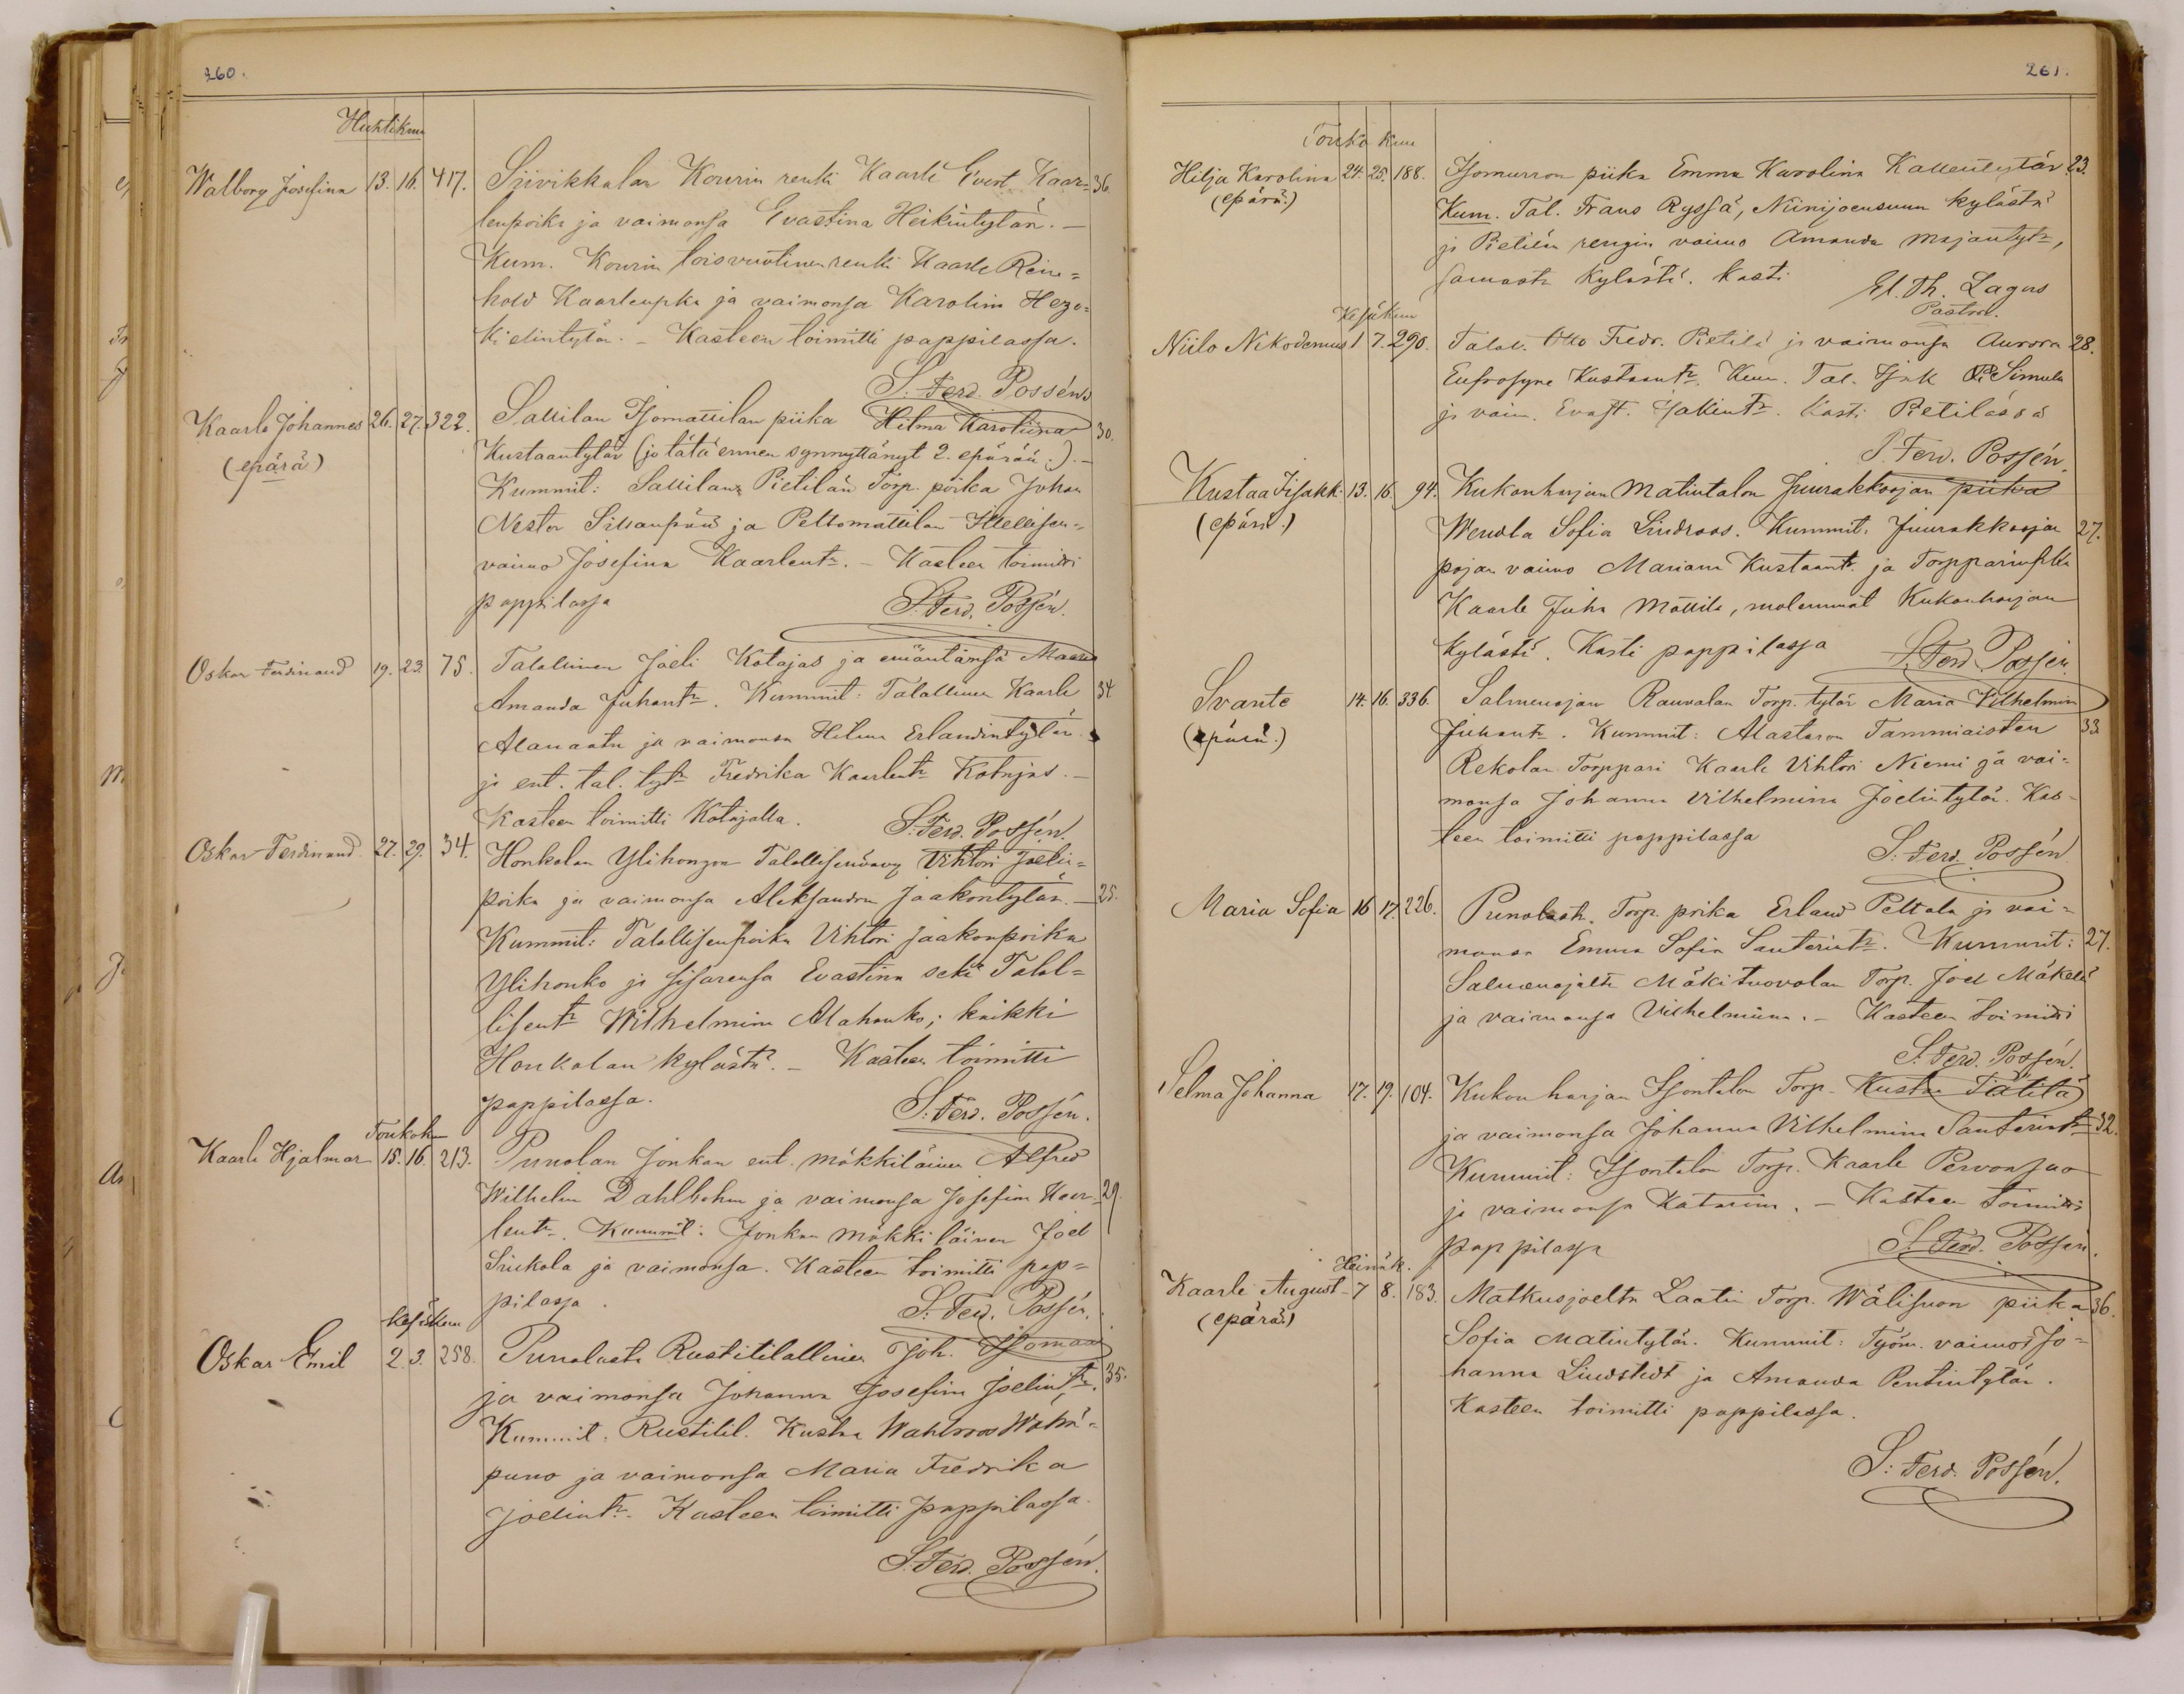 260.
Huhtikuu
Walborg Josefina 13. 16. 417. Siivikkalan Kourin renki Kaarle Evert Kaar= 36.
lenpoika ja vaimonsa Evastina Heikintytär. —
Kum. Kourin renki Kaarle Rein=
hold Kaarlenpka ja vaimonsa Karolina Heze=
kielintytär. — Kasteen toimitti pappilassa.
S. Ferd. Possén
Kaarle Johannes 26. 27. 322. Sallilan Isomattilan piika Hilma Karoliina 30.
(epärä) Kustaantytär (jo tätä ennen synnyttänyt 2. epärää.). —
Kummit: Sallilan Pietilän Torp. poika Johan
Nestor Sillanpää ja Peltomattilan Itsellisen=
vaimo Josefina Kaarlentr. — Kasteen toimitti
pappilassa S. Ferd. Possén.
Oskar Ferdinand 19. 23. 75. Talollinen Joeli Kotajas ja emäntänsä Maria
Amanda Juhantr. Kummit: Talollinen Kaarle 34.
Alanaatu ja vaimonsa Hilma Erlandintytär
ja ent. tal. tytr Fredrika Kaarlentr Kotajas. —
Kasteen toimitti Kotajalla. S. Ferd. Possén.
Oskar Ferdinand 27. 29. 34. Honkolan Ylihongon Talollisenvävy Vihtori Joelin=
poika ja vaimonsa Aleksandra Jaakontytär. — 25.
Kummit: Talollisenpoika Vihtori Jaakonpoika
Ylihonko ja sisarensa Evastina sekä Talol=
lisentr Wilhelmina Alahonko; kaikki
Honkolan kylästä. — Kasteen toimitti
pappilassa. S. Ferd. Possén.
Toukok
Kaarle Hjalmar 15. 16. 213. Punolan Jonkan ent. mäkkiläinen Alfred
Wilhelm Dahlbohm ja vaimonsa Josefina Kaar= 29.
lentr. Kummit: Jonkan mäkkiläinen Joel
Siukola ja vaimonsa. Kasteen toimitti pap=
pilassa. S. Ferd. Possén.
Kesäkuu
Oskar Emil 2. 3. 258. Punolasta Rustitilallinen Joh. Isomaa
ja vaimonsa Johanna Josefina Joelintr. 35.
Kummit. Rustitil. Kusta Wahlroos Wähä=
puno ja vaimonsa Maria Fredrika
Joelintr. Kasteen toimitti pappilassa.
S. Ferd. Possén.
261.
Toukokuu
Hilja Karolina 24. 25. 188. Isomurron piika Emma Karolina Kallentytär 23.
(epärä.) Kum. Tal. Frans Ryssä, Niinijoensuun kylästä
ja Pietilän rengin vaimo Amanda Majantytr,
samasta kylästä. kasti El. Th. Lagus
Pastori.
Kesäkuu
Niilo Nikodemus 1 7. 290. Talol. Otto Fredr. Pietilä ja vaimonsa Aurora 28.
Eufrosyne Kustaantr. Kum. Tal. Isak Simula
ja vaim. Evast. Isakintr. Kasti Pietilässä
S. Ferd. Possén.
Kustaa Iisakk. 13. 16. 94. Kukonharjan Matintalon Juurakkoojan piika
(epärä.) Wendla Sofia Lindroos. Kummit: Juurakkoojan 27.
pojan vaimo Mariana Kustaantr. ja Torpparinplka
Kaarle Juha Mattila, molemmat Kukonharjan
kylästä. Kasti pappilassa S. Ferd. Possén.
Svante 14. 16. 336. Salmenojan Rauvalan Torp. tytär Maria Vilhelmina
(epärä.) Juhantr. Kummit: Alastaron Tammiaisten 33.
Rekolan Torppari Kaarle Vihtori Niemi ja vai=
monsa Johanna Vilhelmina Joelintytär. Kas=
teen toimitti pappilassa S. Ferd. Possén.
Maria Sofia 16 17. 226. Punolasta Torp. poika Erland Peltola ja vai=
monsa Emma Sofia Santerintr. Kummit: 27.
Salmenojalta Mäkituovolan Torp. Joel Mäkelä
ja vaimonsa Vilhelmiina. — Kasteen toimitti
S. Ferd. Possén.
Selma Johanna 17. 19. 104. Kukonharjan Isontalon Torp. Kusta Tätilä
ja vaimonsa Johanna Vilhelmina Santerintr 32.
Kummit: Isontalon Torp. Kaarle Pervonsuo
ja vaimonsa Katarina. — Kasteen toimitti
pappilassa S. Ferd. Possén.
Heinäk.
Kaarle August 7 8. 183. Matkusjoelta Laatin Torp. Wälisuon piika 36.
(epärä.) Sofia Matintytär. Kummit: Työm. vaimot Jo=
hanna Lindstedt ja Amanda Pentintytär.
Kasteen toimitti pappilassa.
S. Ferd. Possén.